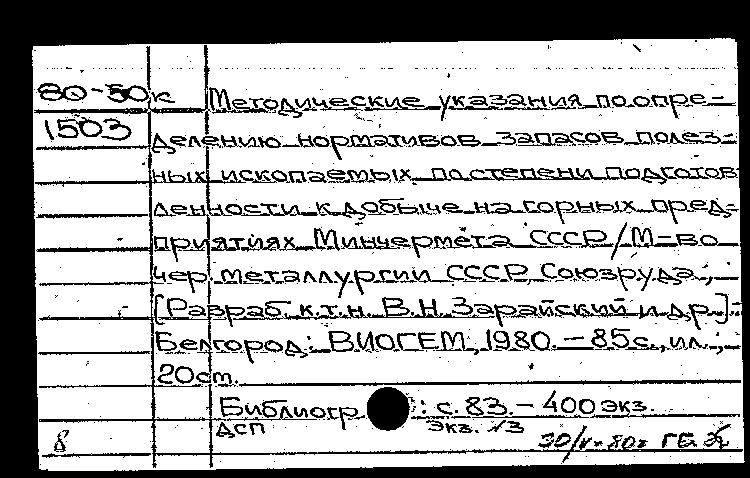 80-50к Методические указания по опре-
1503 делению нормативов запасов полез-
ных ископаемых по степени подготов
ленности к добыче на горных пред-
приятиях Минчермета СССР/М-во
чер. металлургии СССР, Союзруда;
[Разраб. к.т.н. В.Н. Зарайский и др.].-
Белгород: ВИОГЕМ, 1980. - 85 с., ил.;
20 ст.
Библиогр.: с. 83. - 400 экз.
ДСП Экз. №3
8